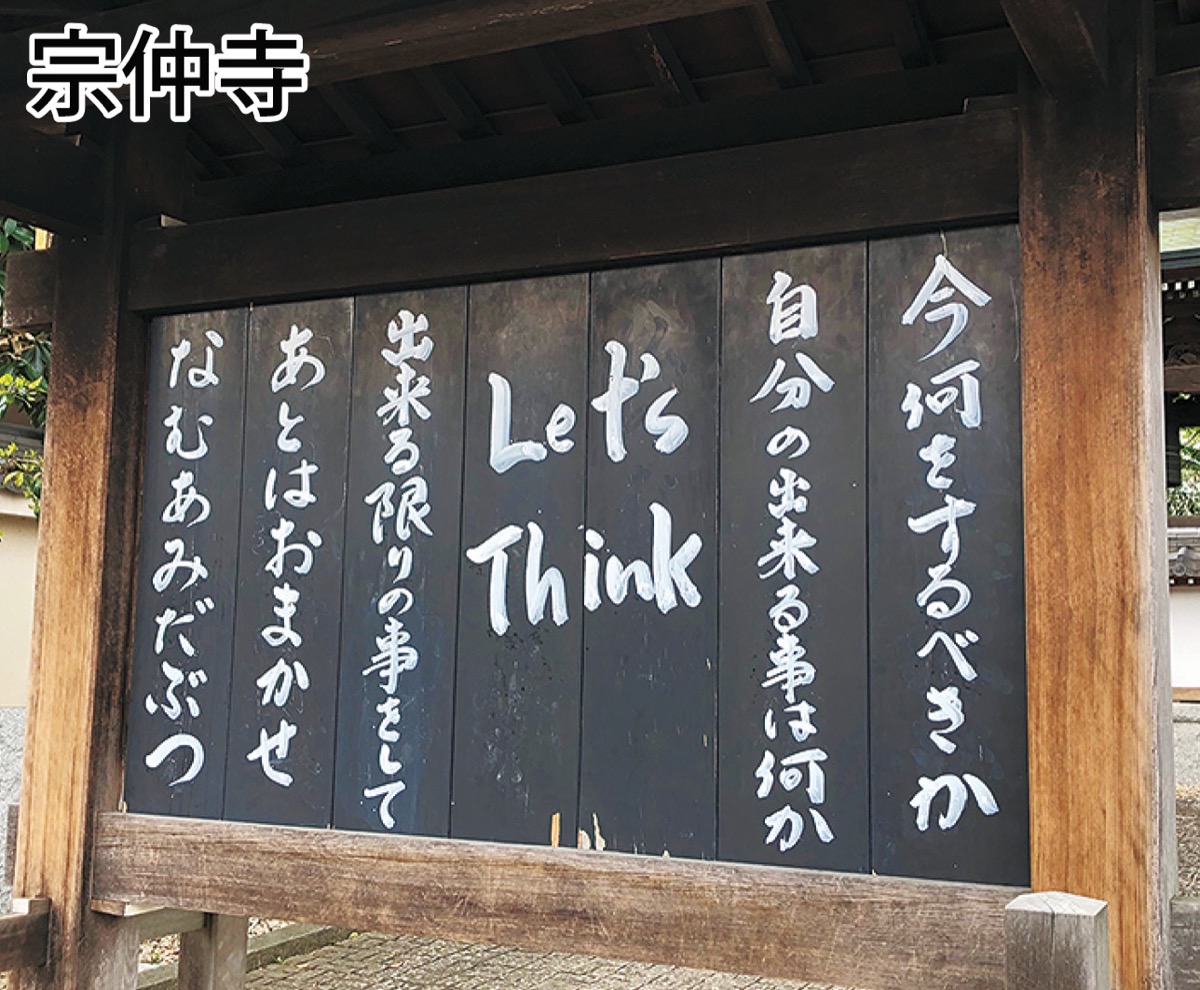 宗仲寺
今何をするべきか
自分の出来る事は何か
Let's
Think
出来る限りの事をして
あとはおまかせ
なむあみだぶつ